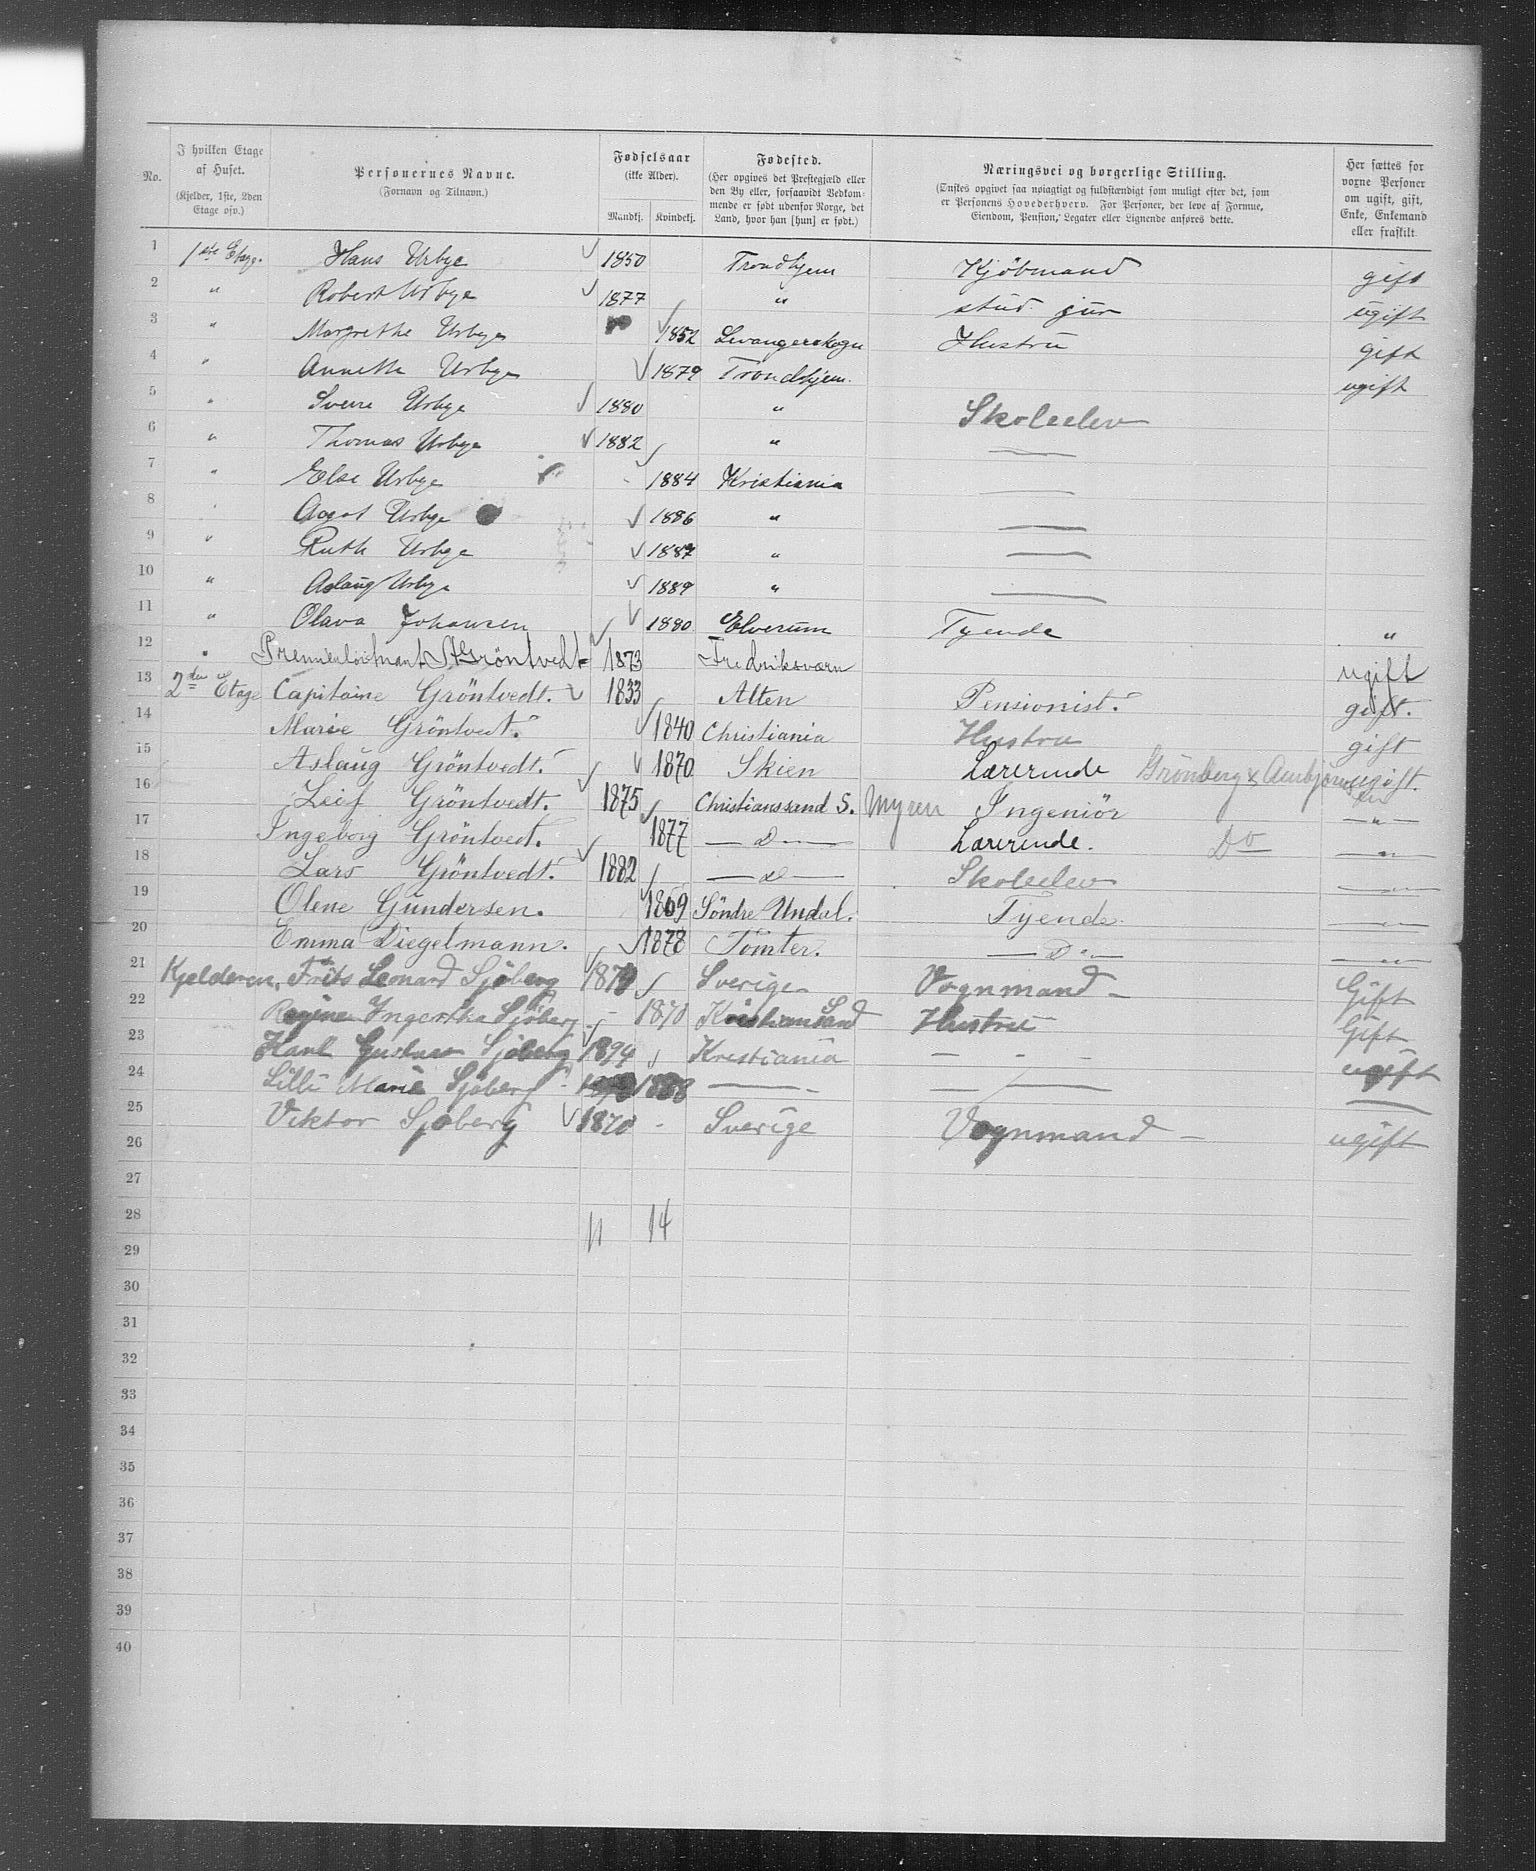 No. | I hvilken Etage af Huset. (Kjelder, 1ste, 2den Etage osv.) | Personernes Navne. (Fornavn og Tilnavn.) | Fødselsaar (ikke Alder). Mandkj. Kvindekj. | Fødested. (Her opgives det Prestegjæld eller den By eller, forsaavidt Vedkommende er født udenfor Norge, det Land, hvor han [hun] er født.) | Næringsvei og borgerlige Stilling. (Ønskes opgivet saa nøiagtigt og fuldstændigt som muligt efter det, som er Personens Hovederhverv. For Personer, der leve af Formue, Eiendom, Pension, Legater eller Lignende anføres dette. | Her sættes for voxne Personer om ugift, gift, Enke, Enkemand eller fraskilt.
1 1ste Etage. Hans Urbye 1850 Trondhjem Kjöbmand gift
2 " Robert Urbye 1877 " stud. jur ugift
3 " Margrethe Urbye 1852 Levangerskogn Hustru gift
4 " Annette Urbye 1879 Trondhjem. ugift
5 " Sverre Urbye 1880 " Skoleelev
6 " Thomas Urbye 1882 " —
7 " Else Urbye 1884 Kristiania —
8 " Aagot Urbye 1886 " —
9 " Ruth Urbye 1887 " —
10 " Aslaug Urbye 1889 " —
11 " Olava Johansen 1880 Elverum Tyende "
12 " Premierløitnant Gröntvedt 1873 Fredriksværn ugift
13 2den Etage Capitaine Gröntvedt. 1833 Alten Pensionist. gift.
14 Marie Gröntvedt. 1840 Christiania Hustru gift
15 Aslaug Gröntvedt. 1870 Skien Lærerinde Grönberg & ugift.
16 Leif Gröntvedt. 1875 Christianssand S. Myren Ingeniör — " —
17 Ingeborg Gröntvedt. 1877 — D — Lærerinde. Do — " —
18 Lars Gröntvedt. 1882 — D — Skoleelev — " —
19 Olene Gundersen. 1869 Söndre Undal. Tyende. — " —
20 Emma Diegelmann. 1878 Tomter. — D — — " —
21 Kjelderen, Frits Leonard Sjöberg Sverige Vognmand — Gift
22 Regine Ingertha Sjöberg 1870 Kristiansand Hustru Gift
23 Karl Gustav Sjöberg 1894 Kristiania — - — ugift
24 Lilli Marie Sjöberg 1888 — — —
25 Viktor Sjöberg 1870 - Sverige Vognmand — ugift
26
27
28 11 14
29
30
31
32
33
34
35
36
37
38
39
40